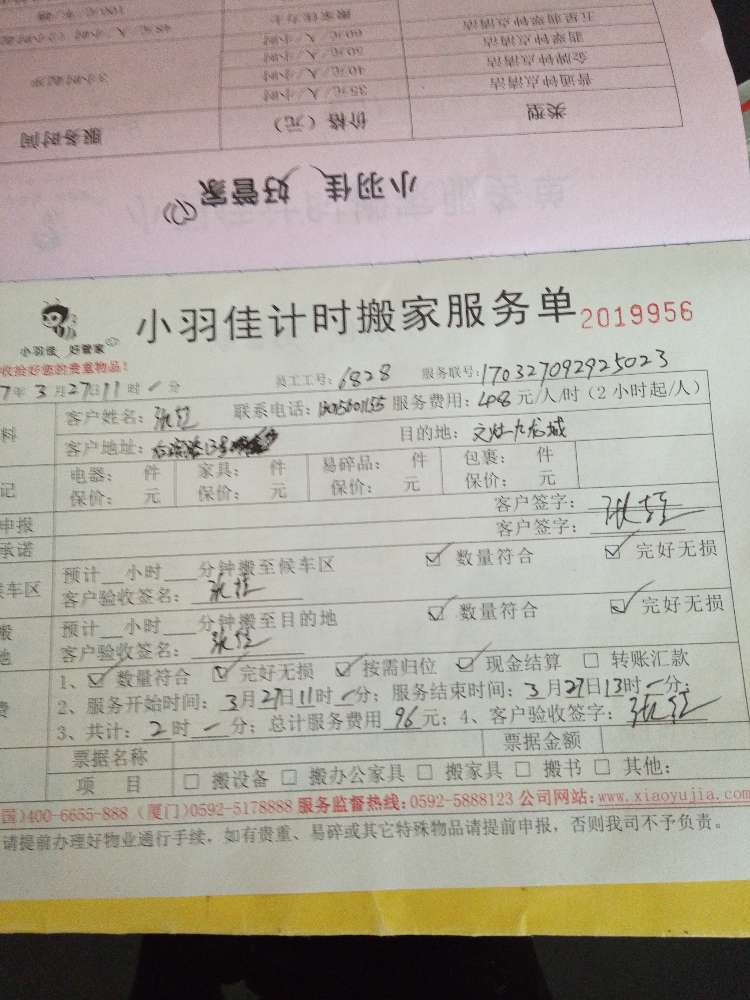 100元/车/趟
48元/人/小时（2小时起）
搬家佳力士
五星翡翠钟点清洁
60元/人/小时
翡翠钟点清洁
50元/人/小时
金牌钟点清洁
3小时起步
40元/人/小时
普通钟点清洁
35元/人/小时
服务时间
价格（元）
类型
小羽佳 好管家
小羽佳计时搬家服务单 2019956
小羽佳 好管家
收拾好您的贵重物品！
7年3月27日11时-分 员工工号：6828 服务联号：170327092925023
料 客户姓名： 联系电话： 服务费用：48元/人/时（2小时起/人）
客户地址： 目的地：文灶九龙城
记 电器： 件 家具： 件 易碎品： 件 包裹： 件
保价： 元 保价： 元 保价： 元 保价： 元
申报 客户签字：
承诺 客户签字：
车区 预计__小时___分钟搬至候车区 ☑ 数量符合 ☑ 完好无损
客户验收签名：
搬 预计__小时___分钟搬至目的地 ☑ 数量符合 ☑ 完好无损
地 客户验收签名：
1、☑ 数量符合 ☑ 完好无损 ☑ 按需归位 ☑ 现金结算 □ 转账汇款
费 2、服务开始时间：3月27日11时-分；服务结束时间：3月27日13时-分；
3、共计：2时-分；总计服务费用96元；4、客户验收签字：
票据名称 票据金额
项 目 □ 搬设备 □ 搬办公家具 □ 搬家具 □ 搬书 □ 其他：
国）400-6655-888（厦门）0592-5178888 服务监督热线：0592-5888123 公司网站：www.xiaoyujia.com
请提前办理好物业通行手续，如有贵重、易碎或其它特殊物品请提前申报，否则我司不予负责。